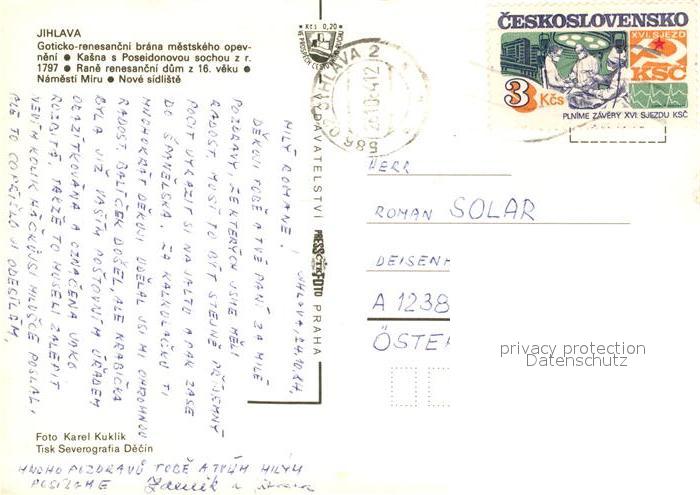 JIHLAVA
Goticko-renesanční brána městského opev-
nění ● Kašna s Poseidonovou sochou z r.
1797 ● Raně renesanční dům z 16. věku ●
Náměstí Míru ● Nové sídliště
Kčs 0,20
VYDAVATELSTVÍ PRESSFOTO PRAHA
586 02 JIHLAVA 2
ČESKOSLOVENSKO
XVI. SJEZD
KSČ
3 Kčs
PLNÍME ZÁVĚRY XVI. SJEZDU KSČ
JIHLAVA, 24.10.
MILÝ ROMANE!
DĚKUJI TOBĚ A TVÉ PANÍ ZA MILÉ
POZDRAVY, ZE KTERÝCH JSME MĚLI
RADOST. MUSÍ TO BÝT STEJNĚ PŘÍJEMNÝ
POCIT VYRAZIT SI NA JALTU A PAK ZASE
DO ŠPANĚLSKA. ZA KALKULAČKU TI
MNOHOKRÁT DĚKUJI UDĚLAL JSI MI OHROMNOU
RADOST. BALÍČEK DOŠEL, ALE KRABIČKA
BYLA JIŽ VAŠÍM POŠTOVNÍM ÚŘADEM
ORAZÍTKOVÁNA A OZNAČENA JAKO
ROZBITÁ, TAKŽE TO MUSELI ZALEPIT
NEVÍM KOLIK HÁČKŮ JSI MILUŠCE POSLAL,
ALE TO CO DOŠLO JÍ ODESÍLÁM.
HERR
ROMAN SOLAR
DEISEN
A 1238
ÖSTE
privacy protection
Datenschutz
Foto Karel Kuklík
Tisk Severografia Děčín
MNOHO POZDRAVŮ TOBĚ A TVÝM MILÝM
POSÍLÁME Zdeněk a